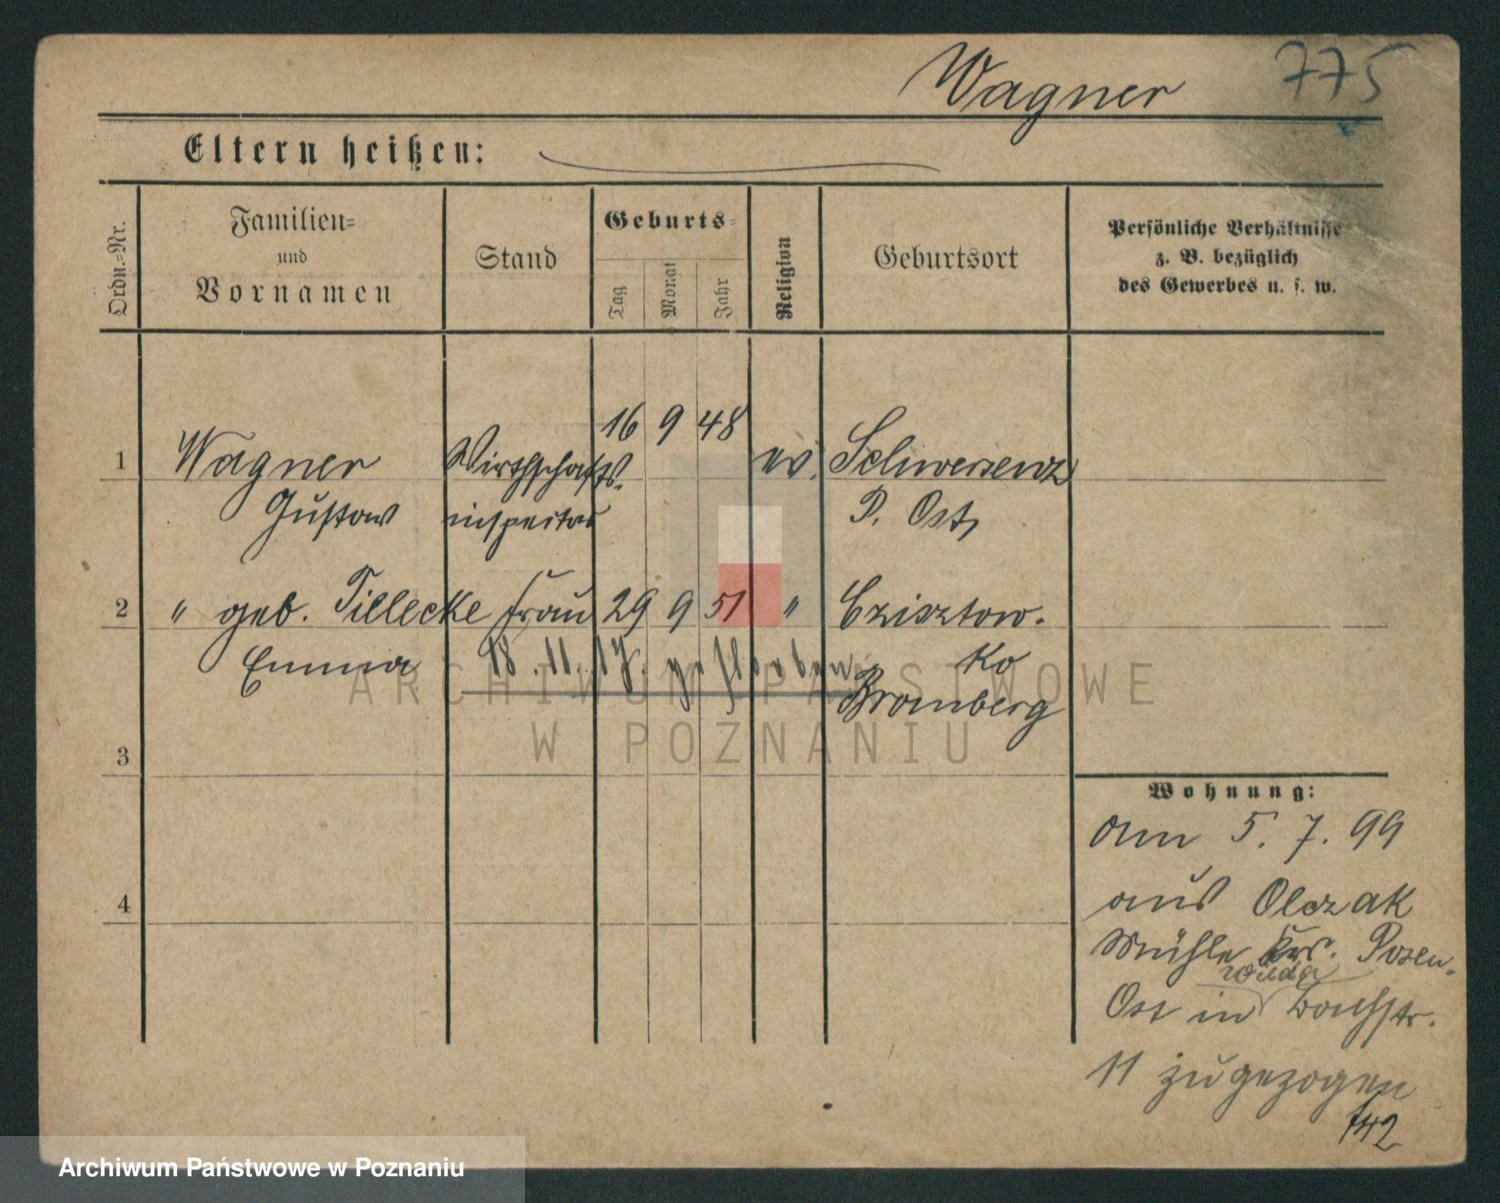 Wagner 775
Eltern heißen:
Ordn.=Nr.
Familien=
und
Vornamen
Stand
Geburts=
Tag
Monat
Jahr
Religion
Geburtsort
Persönliche Verhältnisse
z. B. bezüglich
des Gewerbes u. s. w.
1 Wagner Wirthschafts- 16 9 48 ev. Schwersenz
Gustav inspektor P. Ost,
2 " geb. Tillecke Frau 29 9 51 " Czisztow-
Emma 18.11.17. gestorben ko
Bromberg
3
4
Wohnung:
am 5. 7. 99
aus Olczak
Mühle Krs. Posen-
Wilda
Ost in Bachstr.
11 zugezogen
142
ARCHIWUM PAŃSTWOWE
W POZNANIU
Archiwum Państwowe w Poznaniu